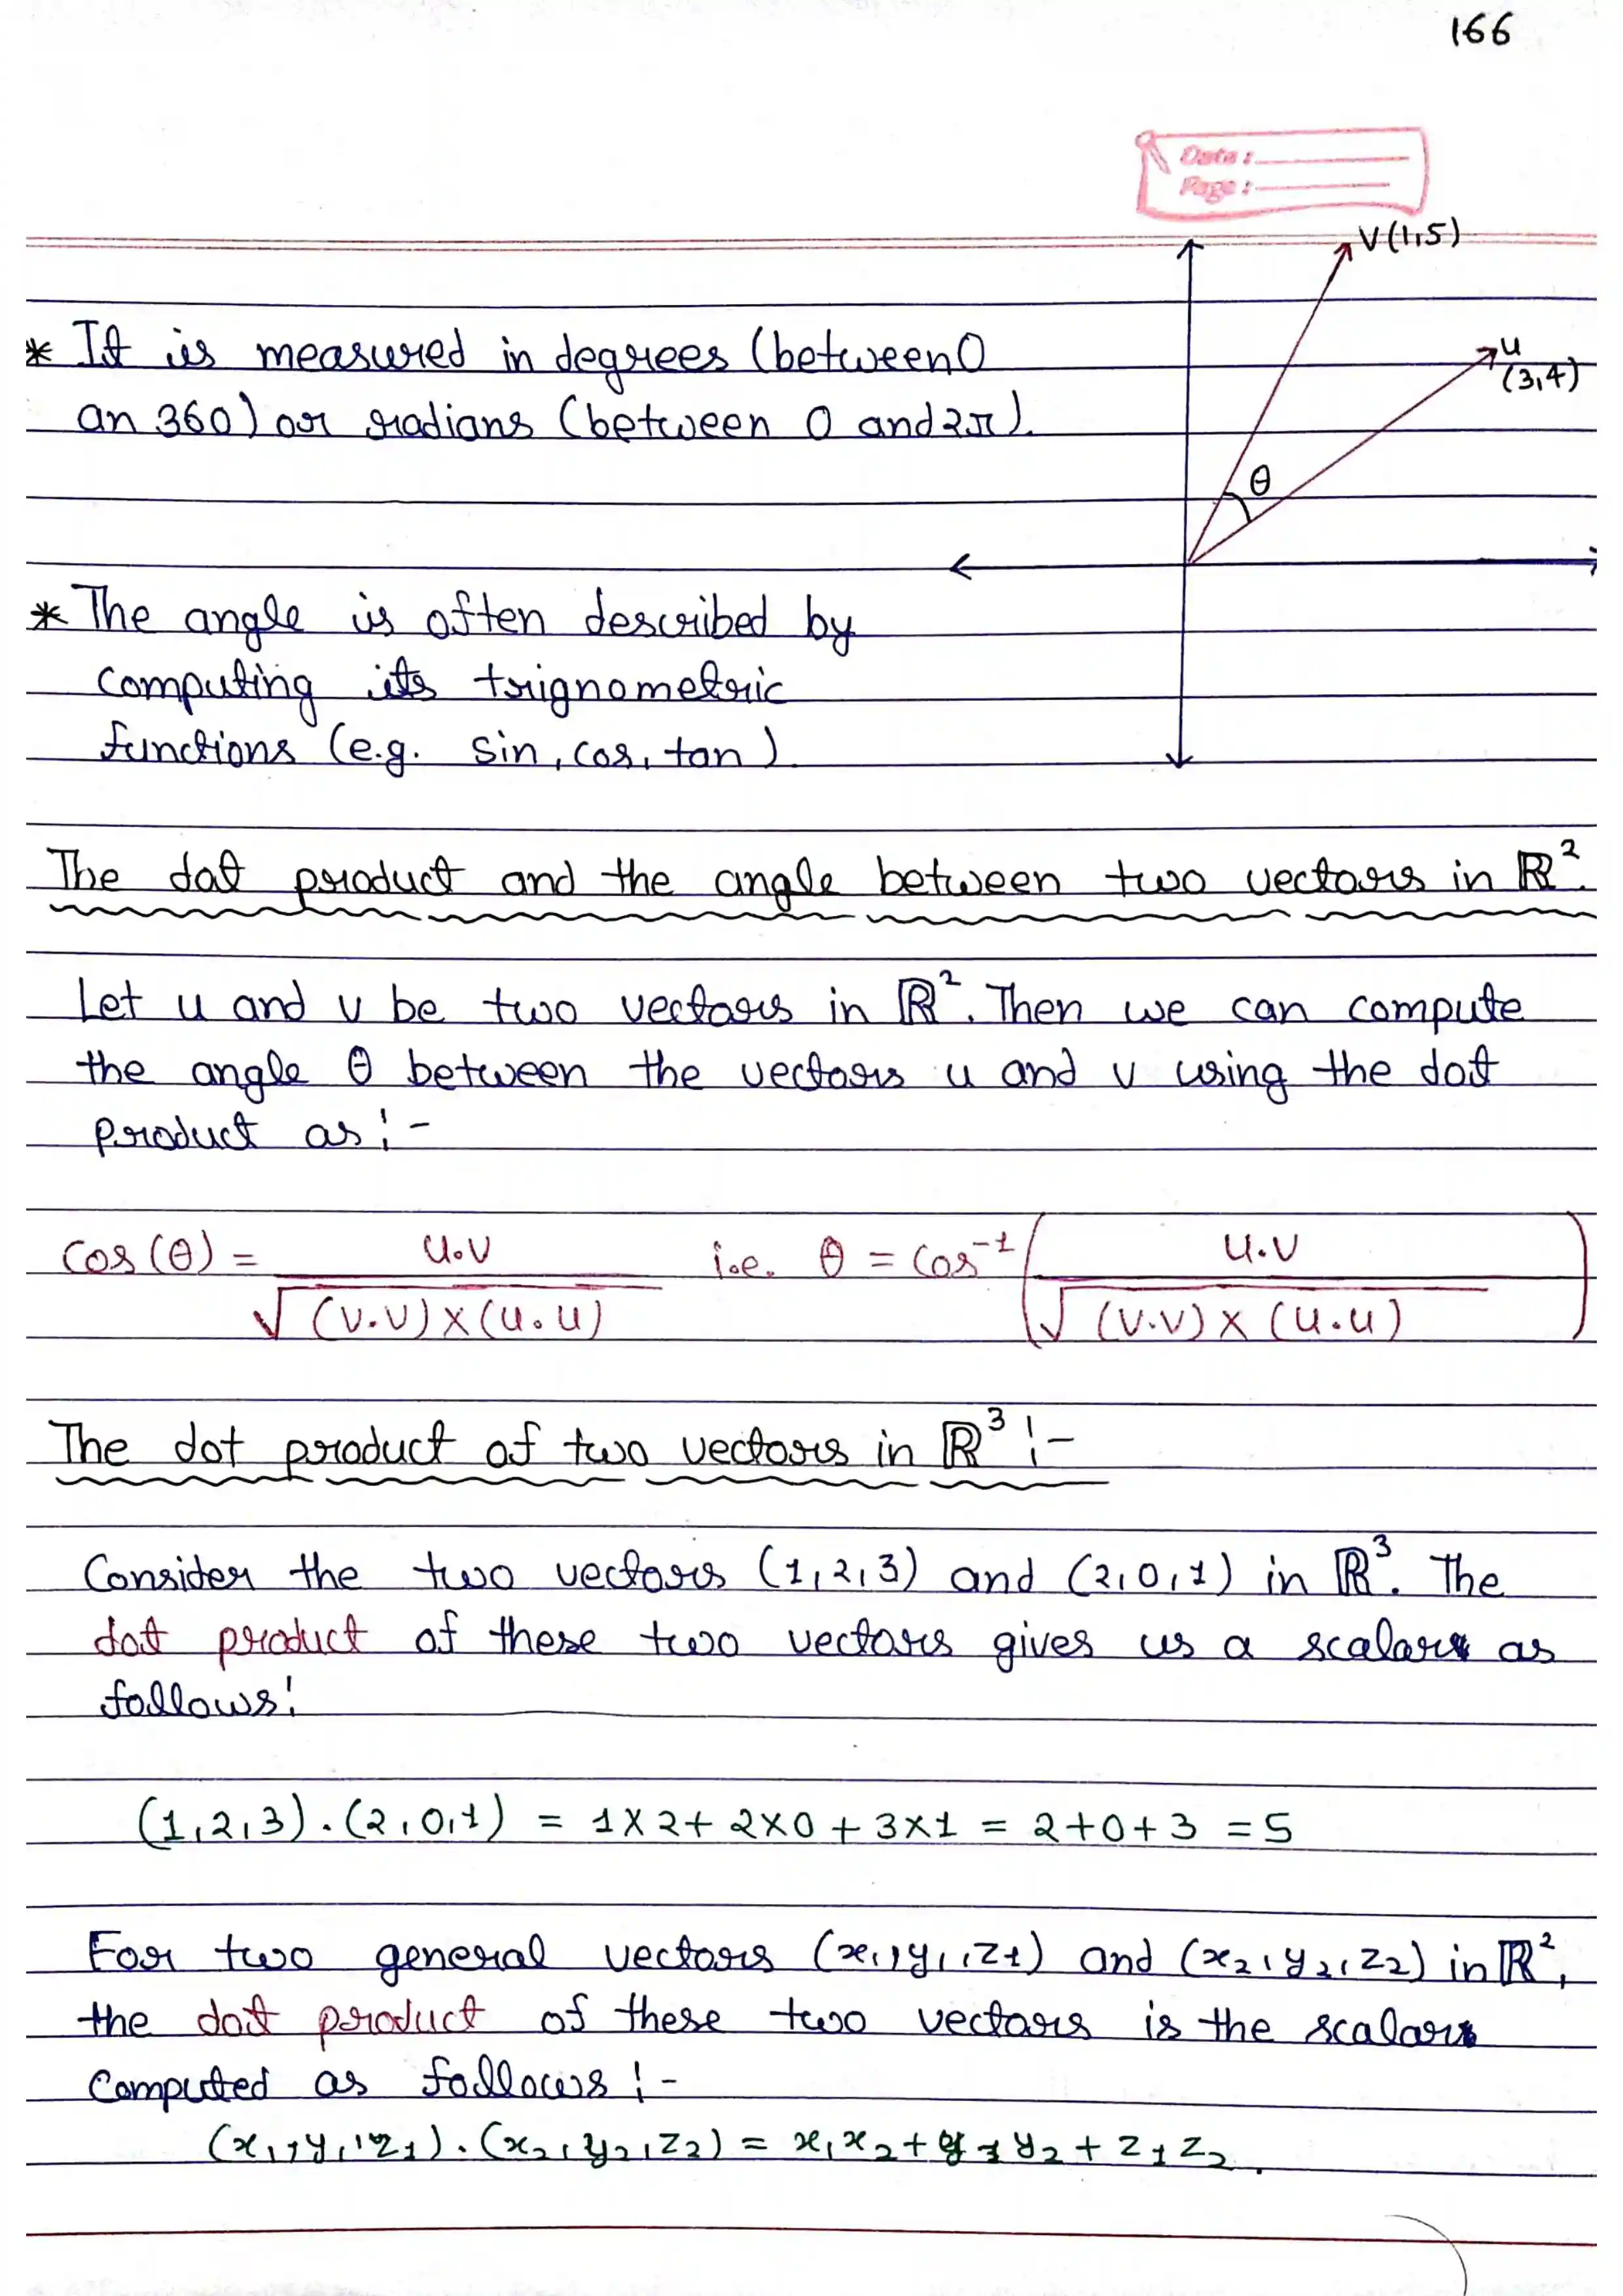 166
Date :
Page :
V(1,5)
* It is measured in degrees (between 0
u
(3,4)
an 360) or radians (between 0 and 2π).
θ
* The angle is often described by
computing its trignometric
functions (e.g. sin, cos, tan)
The dot product and the angle between two vectors in ℝ².
Let u and v be two vectors in ℝ². Then we can compute
the angle θ between the vectors u and v using the dot
product as :-
cos(θ) = u.v / √(v.v)×(u.u) i.e. θ = cos⁻¹(u.v / √(v.v)×(u.u))
The dot product of two vectors in ℝ³ :-
Consider the two vectors (1,2,3) and (2,0,1) in ℝ³. The
dot product of these two vectors gives us a scalar as
follows:
(1,2,3).(2,0,1) = 1×2+ 2×0 + 3×1 = 2+0+3 = 5
For two general vectors (x₁,y₁,z₁) and (x₂,y₂,z₂) in ℝ²,
the dot product of these two vectors is the scalar
computed as follows :-
(x₁,y₁,z₁).(x₂,y₂,z₂) = x₁x₂+y₁y₂+z₁z₂.